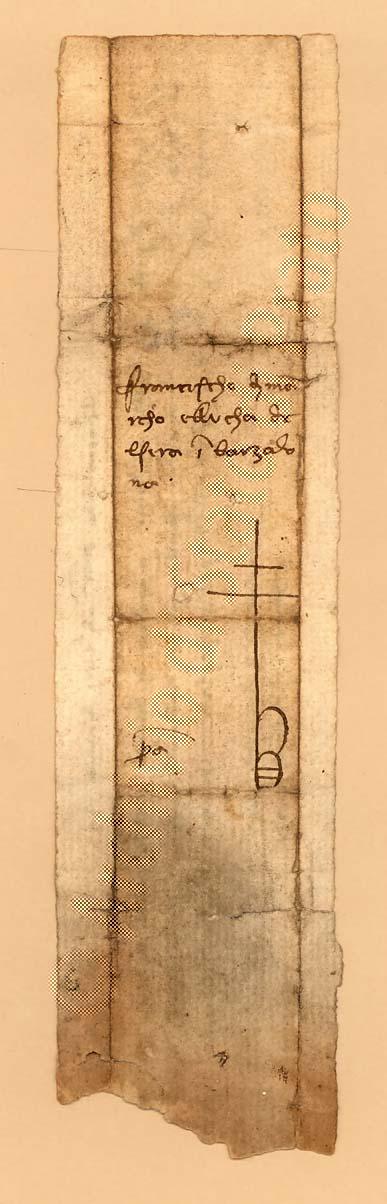 Franciescho di ma
rcho e lucha de
lsera i barzalo
na
pa
© Archivio di Stato di Prato